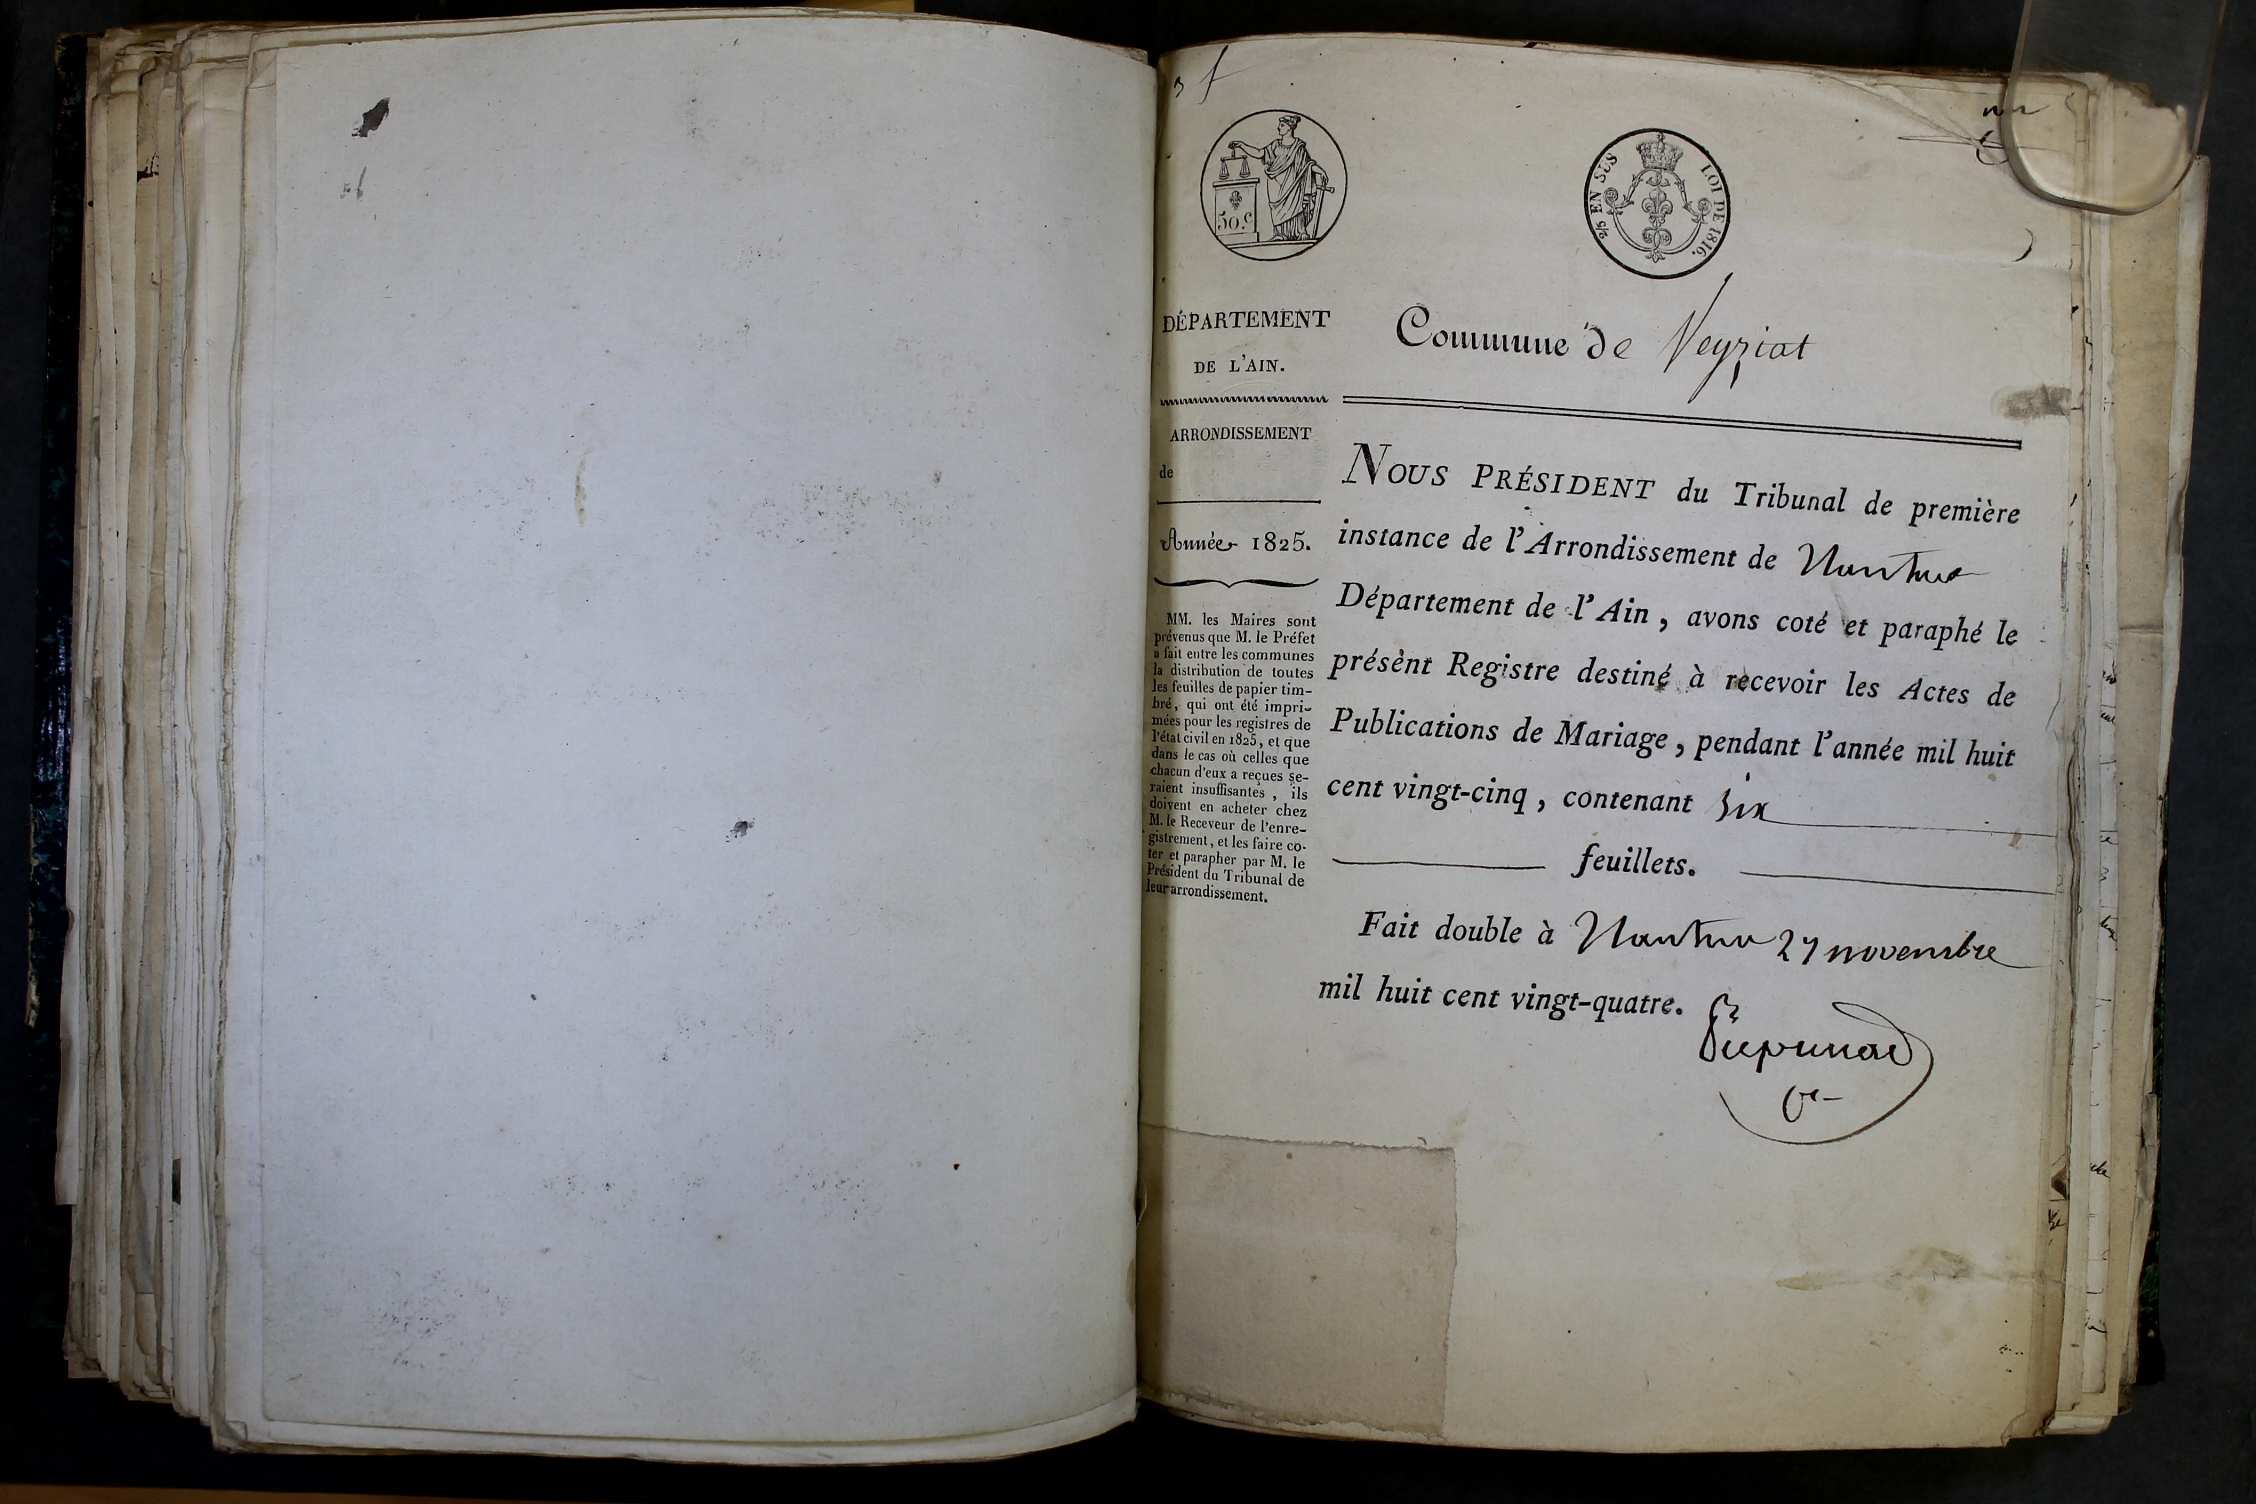 50.c
2/5 EN SUS
LOI DE 1816.
DÉPARTEMENT
DE L'AIN.
Commune de Veyziat
ARRONDISSEMENT
de
Année 1825.
MM. les Maires sont
prévenus que M. le Préfet
a fait entre les communes
la distribution de toutes
les feuilles de papier tim-
bré, qui ont été impri-
mées pour les registres de
l'état civil en 1825, et que
dans le cas où celles que
chacun d'eux a reçues se-
raient insuffisantes, ils
doivent en acheter chez
M. le Receveur de l'enre-
gistrement, et les faire co-
ter et parapher par M. le
Président du Tribunal de
leur arrondissement.
NOUS PRÉSIDENT du Tribunal de première
instance de l'Arrondissement de Nantua
Département de l'Ain, avons coté et paraphé le
présent Registre destiné à recevoir les Actes de
Publications de Mariage, pendant l'année mil huit
cent vingt-cinq, contenant six
feuillets.
Fait double à Nantua 27 novembre
mil huit cent vingt-quatre.